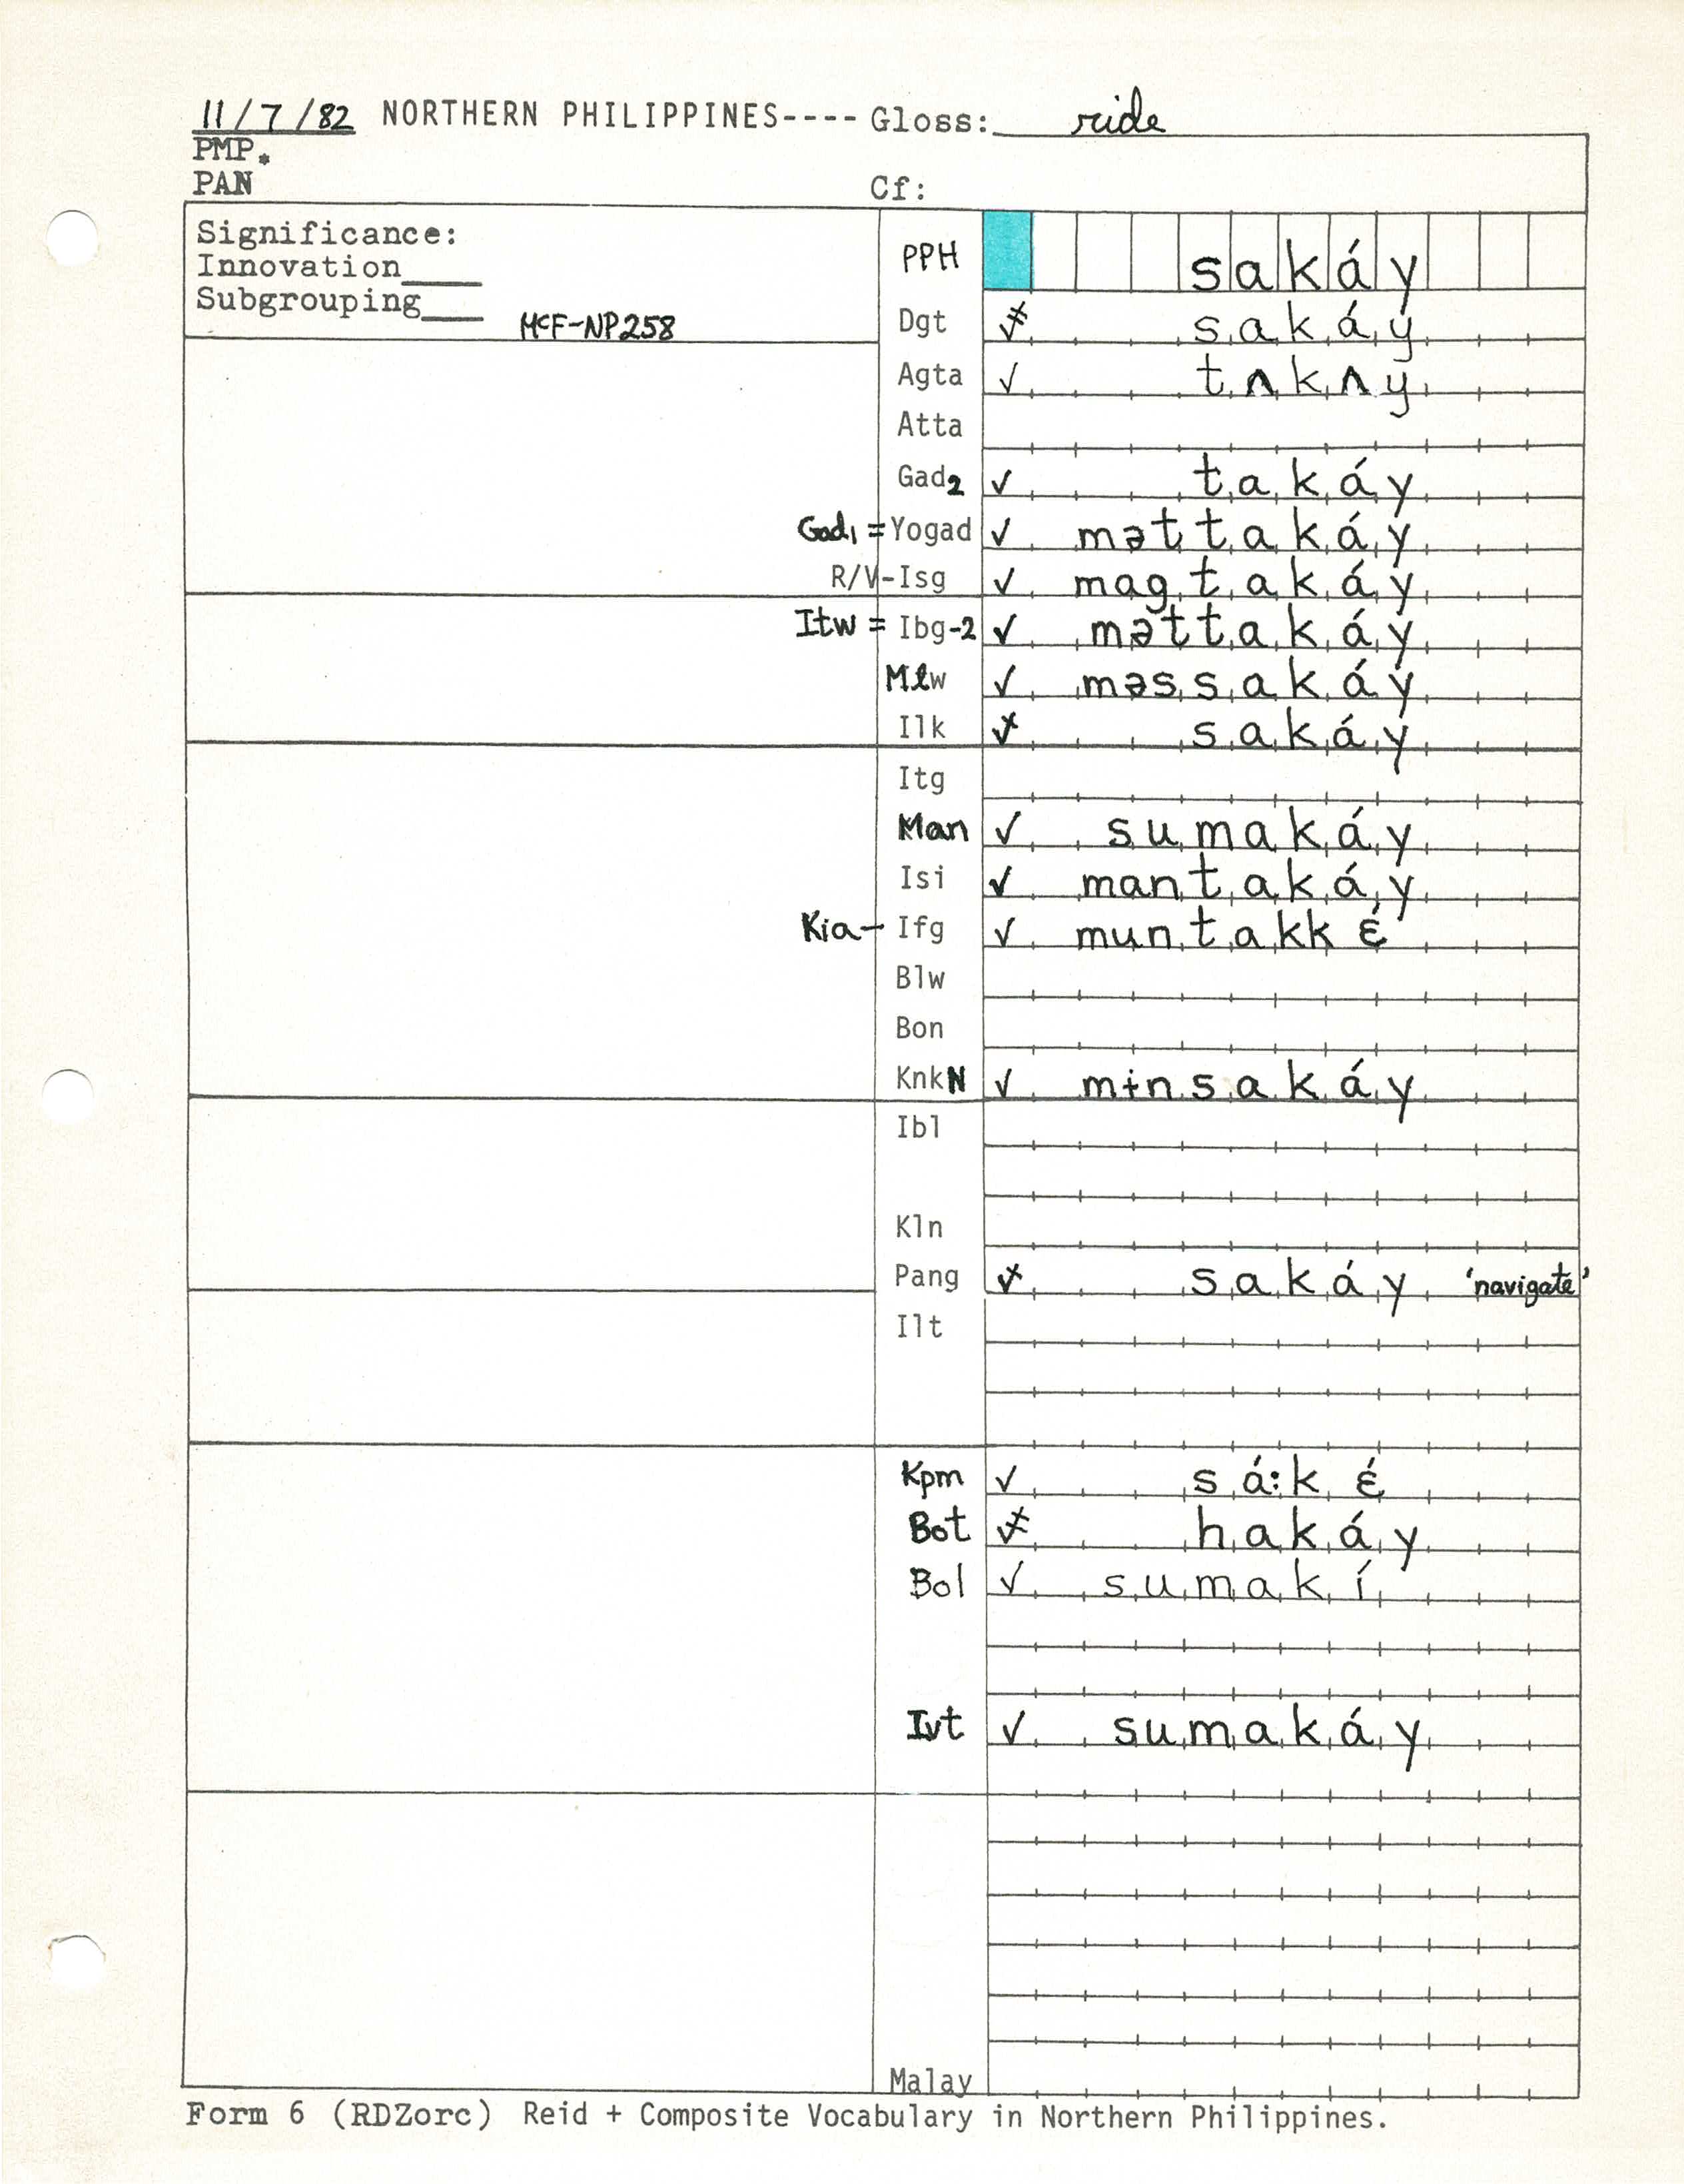 11/7/82 NORTHERN PHILIPPINES---- Gloss: ride
PMP*
PAN Cf:
Significance:
Innovation____
Subgrouping____ McF-NP258
PPH sakáy
Dgt sakáy
Agta ✓ tʌkʌy
Atta
Gad2 ✓ takáy
Gad1 = Yogad ✓ məttakáy
R/V-Isg ✓ magtakáy
Itw = Ibg-2 ✓ məttakáy
Mlw ✓ məssakáy
Ilk sakáy
Itg
Man ✓ sumakáy
Isi ✓ mantakáy
Kia-Ifg ✓ muntakkɛ́
Blw
Bon
KnkN ✓ mɨnsakáy
Ibl
Kln
Pang sakáy 'navigate'
Ilt
Kpm ✓ sá:kɛ́
Bot hakáy
Bol ✓ sumakí
Ivt ✓ sumakáy
Malay
Form 6 (RDZorc) Reid + Composite Vocabulary in Northern Philippines.